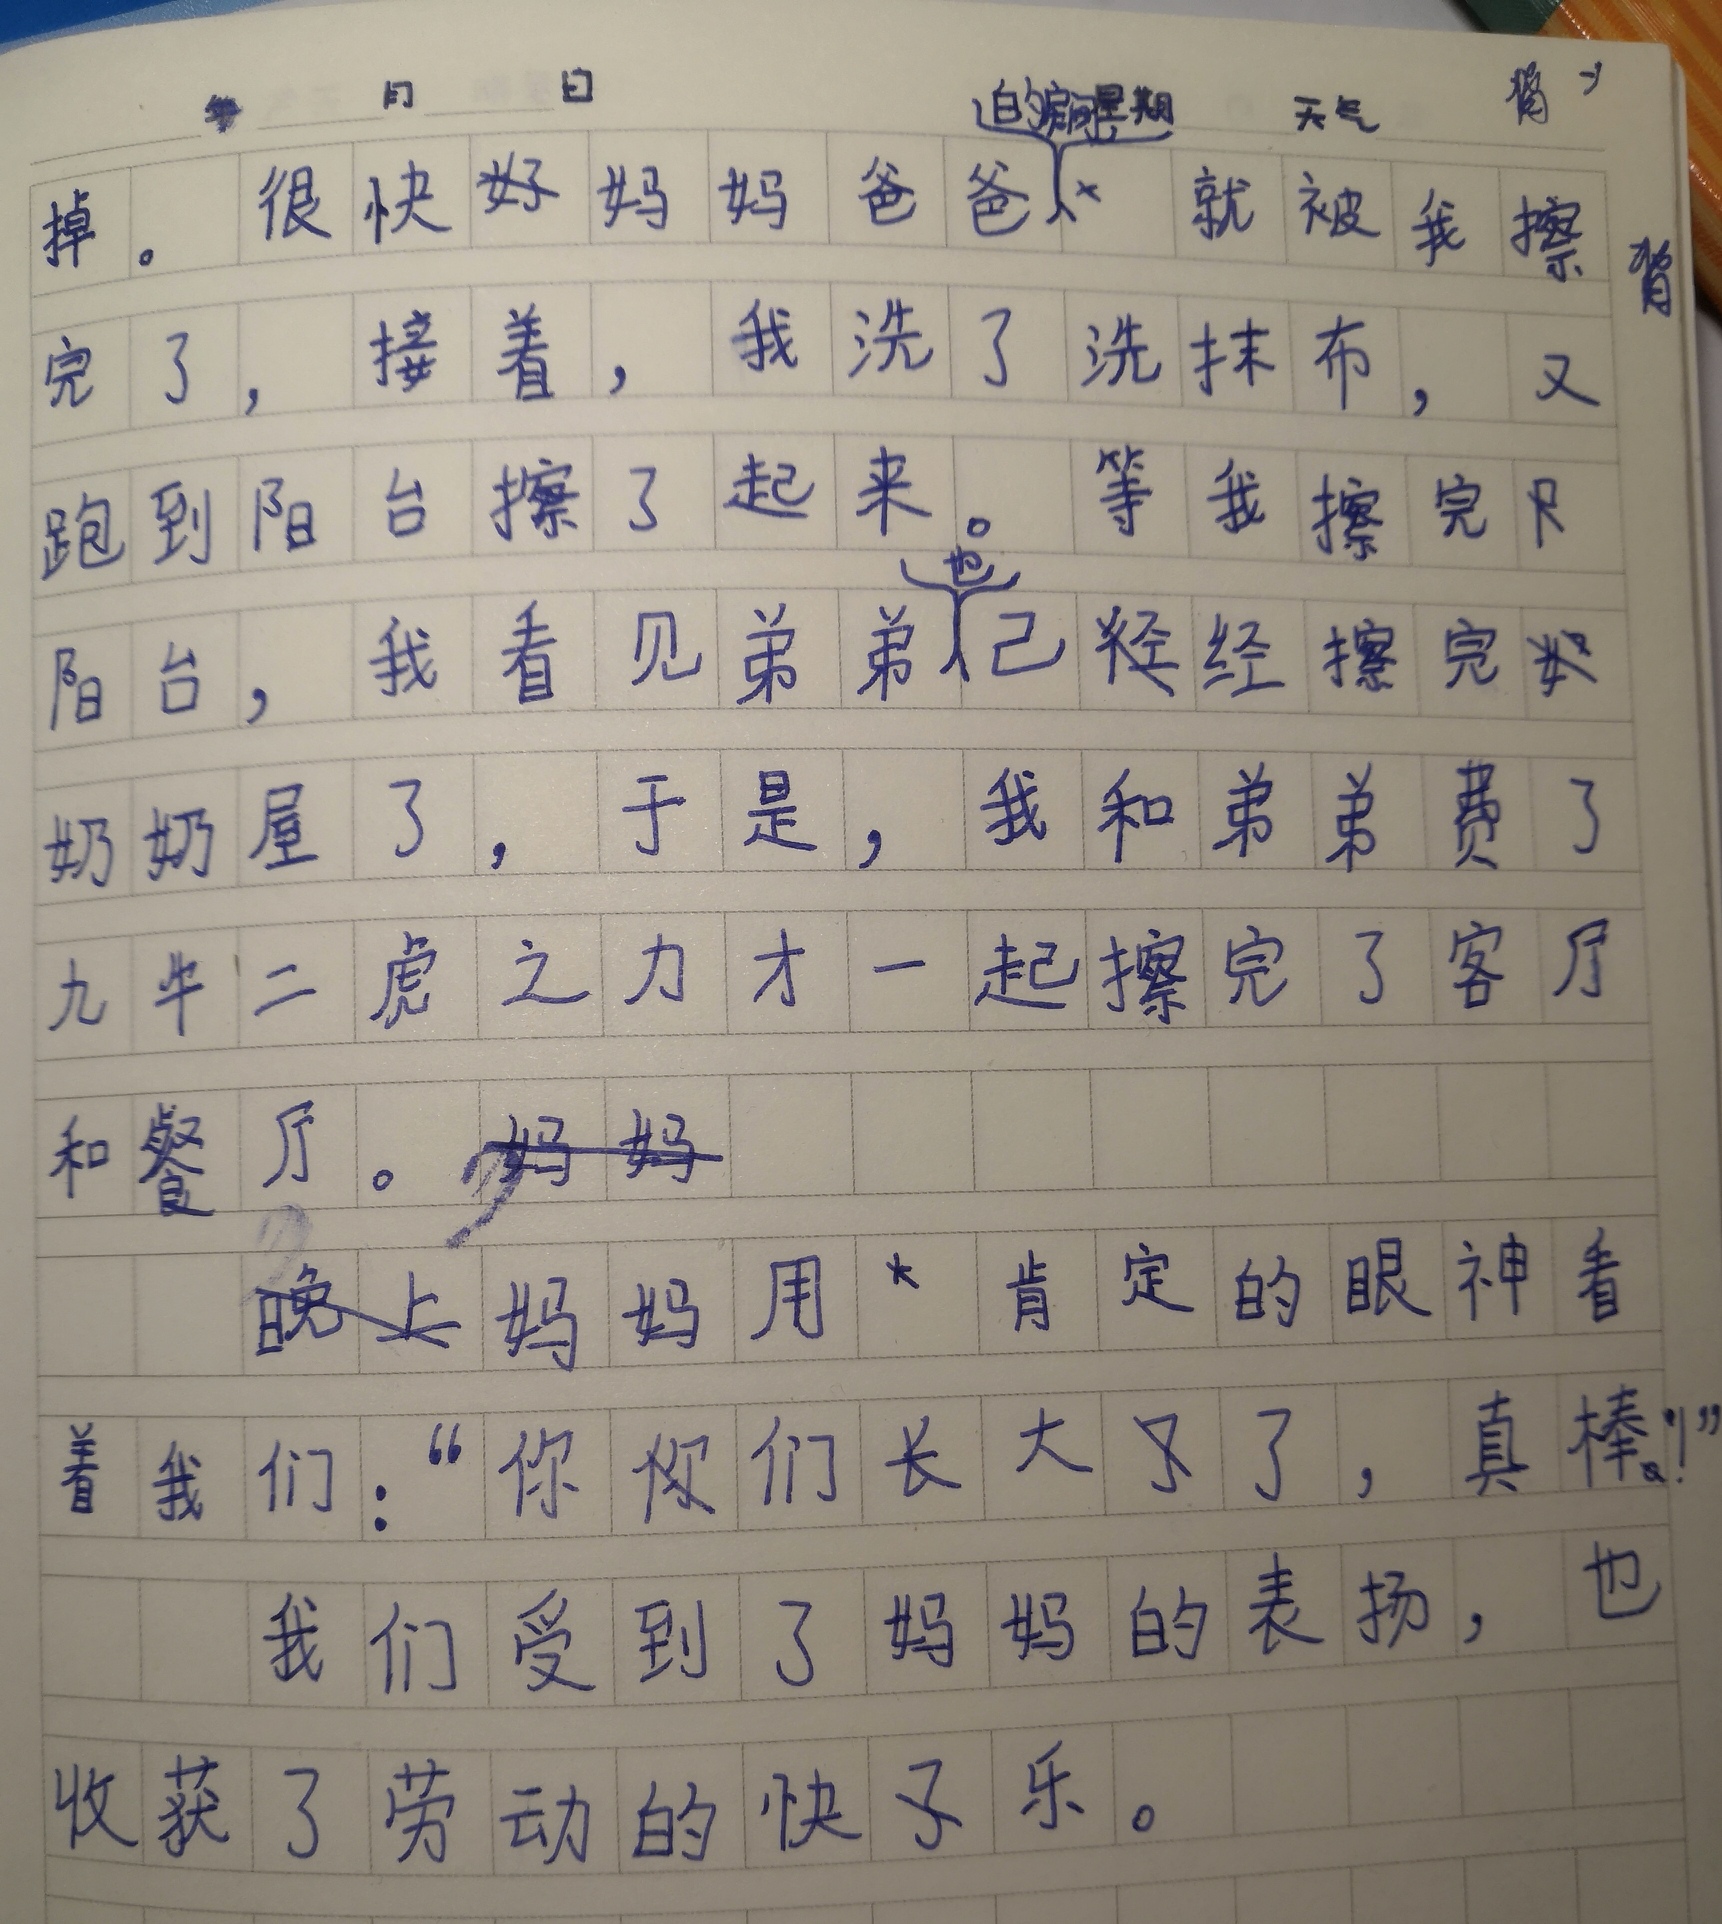 年 月 日 星期 天气
掉。很快妈妈爸爸的房间就被我擦
完了，接着，我洗了洗抹布，又
跑到阳台擦了起来。等我擦完
阳台，我看见弟弟也己经擦完
奶奶屋了，于是，我和弟弟费了
九牛二虎之力才一起擦完了客厅
和餐厅。
妈妈用肯定的眼神看
着我们：“你们长大了，真棒！”
我们受到了妈妈的表扬，也
收获了劳动的快乐。